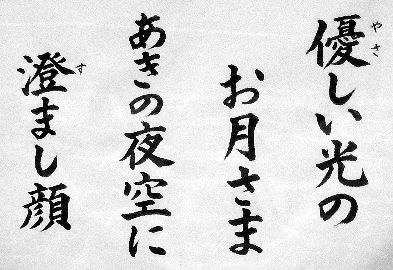 優しい光の
お月さま
あきの夜空に
澄まし顔